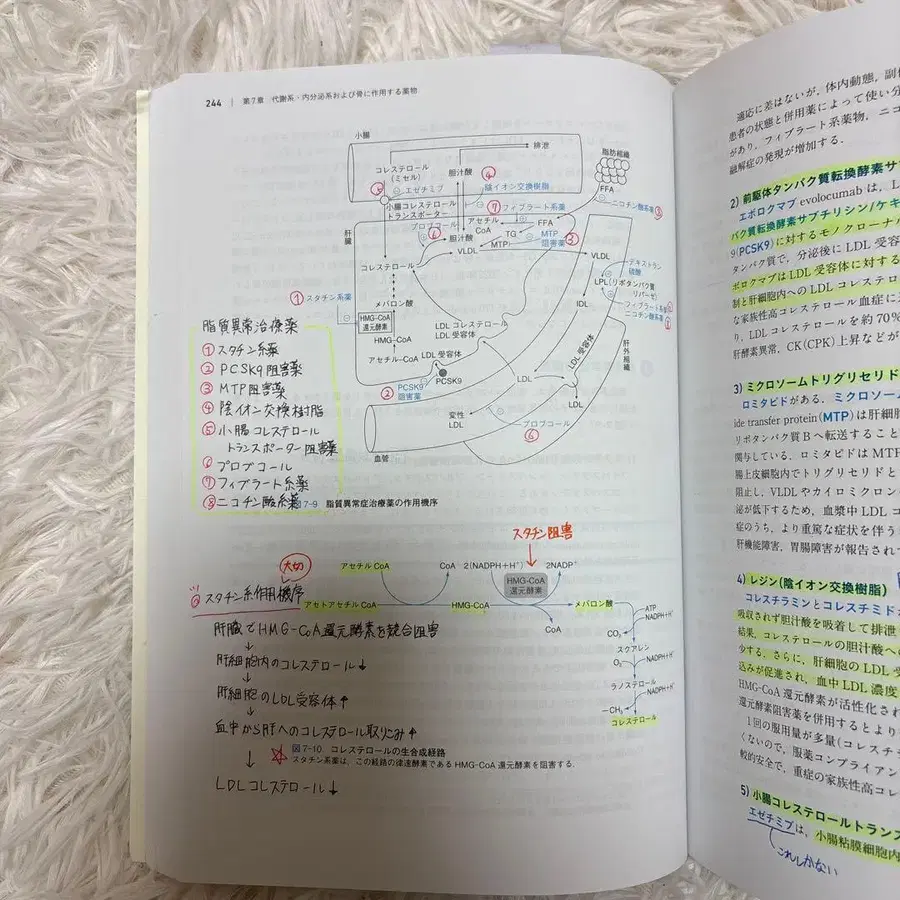 244 | 第7章 代謝系・内分泌系および骨に作用する薬物
小腸
排泄
コレステロール
(ミセル)
胆汁酸
④
陰イオン交換樹脂
脂肪組織
FFA
⑤
エゼチミブ
小腸コレステロール
トランスポーター
⑦ フィブラート系薬
ニコチン酸系薬 ⑧
肝臓
プロブコール
⑥
アセチル
CoA
FFA
胆汁酸
TG
MTP
MTP
阻害薬
③
VLDL
VLDL
コレステロール
デキストラン
硫酸
LPL(リポタンパク質
リパーゼ)
① スタチン系薬
メバロン酸
IDL
フィブラート系薬
ニコチン酸系薬
HMG-CoA
還元酵素
LDL コレステロール
LDL 受容体
HMG-CoA
アセチル-CoA
LDL 受容体
LDL 受容体
肝外組織
PCSK9
② PCSK9
阻害薬
LDL
LDL
変性
LDL
プロブコール
⑥
血管
脂質異常治療薬
① スタチン系薬
② PCSK9阻害薬
③ MTP阻害薬
④ 陰イオン交換樹脂
⑤ 小腸コレステロール
トランスポーター阻害薬
⑥ プロブコール
⑦ フィブラート系薬
⑧ ニコチン酸系薬
図7-9 脂質異常症治療薬の作用機序
スタチン阻害
大切
アセチル CoA
CoA
2(NADPH+H⁺)
2NADP⁺
HMG-CoA
還元酵素
スタチン系作用機序
アセトアセチル CoA
HMG-CoA
メバロン酸
CoA
ATP
NADPH+H⁺
CO₂
スクアレン
O₂
NADPH+H⁺
ラノステロール
NADPH+H⁺
－CH₃
コレステロール
肝臓でHMG-CoA還元酵素を競合阻害
↓
肝細胞内のコレステロール↓
↓
肝細胞のLDL受容体↑
↓
血中から肝へのコレステロール取りこみ↑
↓
LDLコレステロール↓
図7-10 コレステロールの生合成経路
スタチン系薬は，この経路の律速酵素であるHMG-CoA 還元酵素を阻害する．
適応に差はないが，体内動態，副
患者の状態と併用薬によって使い分
があり，フィブラート系薬物，ニコ
融解症の発現が増加する．
2) 前駆体タンパク質転換酵素サブ
エボロクマブ evolocumab は，L
パク質転換酵素サブチリシン/ケキ
9(PCSK9)に対するモノクローナ
タンパク質で，分泌後に LDL 受容
ボロクマブはLDL 受容体に対する
制と肝細胞内への LDL コレステロ
な家族性高コレステロール血症に
り，LDL コレステロールを約 70％
肝酵素異常，CK(CPK)上昇などが
3) ミクロソームトリグリセリド
ロミタピドがある．ミクロソーム
ide transfer protein(MTP)は肝細胞
リポタンパク質 B へ転送すること
関与している．ロミタピドは MTP
腸上皮細胞内でトリグリセリドと
阻止し，VLDL やカイロミクロン
泌が低下するため，血漿中 LDL コ
症のうち，より重篤な症状を伴う
肝機能障害，胃腸障害が報告されて
4) レジン(陰イオン交換樹脂)
コレスチラミンとコレスチミド
吸収されず胆汁酸を吸着して排泄
結果，コレステロールの胆汁酸への
少する．さらに，肝細胞の LDL 受
込みが促進され，血中 LDL 濃度
HMG-CoA 還元酵素が活性化され
還元酵素阻害薬を併用するとより
1 回の服用量が多量(コレスチ
くないので，服薬コンプライアン
較的安全で，重症の家族性高コレ
5) 小腸コレステロールトランス
エゼチミブは，小腸粘膜細胞内
これしかない